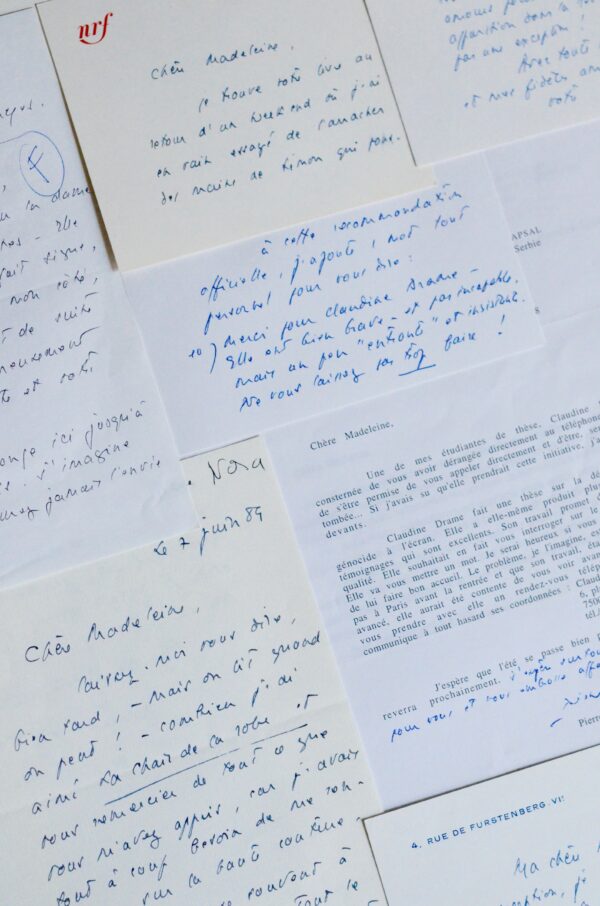 nrf
Chère Madeleine,
je trouve votre livre au
retour d'un weekend où j'ai
en vain essayé de l'arracher
des mains de Simon qui
amours
apparition dans la
par une exception !
Avec toute
et mes fidèles
votre
à cette recommandation
officielle, j'ajoute 1 mot tout
personnel pour vous dire :
10) Merci pour Claudine Drame –
Elle est bien brave – et pas incapable,
mais un peu "entrante" et insistante.
Ne vous laissez pas trop faire !
APSAL
Serbie
8
Chère Madeleine,
Une de mes étudiantes de thèse, Claudine
consternée de vous avoir dérangée directement au téléphone
de s'être permise de vous appeler directement et d'être, se
tombée... Si j'avais su qu'elle prendrait cette initiative, j'a
devants.
Claudine Drame fait une thèse sur la dé
génocide à l'écran. Elle a elle-même produit plu
témoignages qui sont excellents. Son travail promet d
qualité. Elle souhaitait en fait vous interroger sur le
Elle va vous mettre un mot. Je serai heureux si vous
de lui faire bon accueil. Le problème, je l'imagine, es
pas à Paris avant la rentrée et que son travail, éta
avancé, elle aurait été contente de vous voir avan
vous prendre avec elle un rendez-vous télép
communique à tout hasard ses coordonnées : Claud
6, pl
750
tél.
J'espère que l'été, se passe bien p
reverra prochainement. J'espère surtout
pour vous et vous embrasse
Pierre
F
la
elle
fait signe,
mon côté,
de suite
et votre
ici jusqu'à
J'imagine
jamais l'envie
Nora
Le 7 juin 84
Chère Madeleine,
Laissez-moi vous dire,
bien tard, – mais on lit quand
on peut ! – combien j'ai
aimé La Chair de la robe et
vous remercier de tout ce que
vous m'avez appris, car j'avais
tout à coup besoin de me
sur la haute couture,
souvent à
Tout le
4, RUE DE FURSTENBERG, VIe
Ma chère